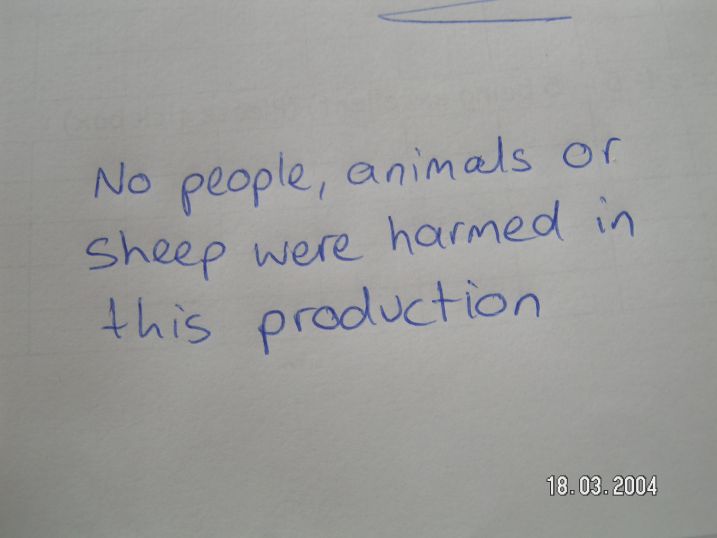 No people, animals or
sheep were harmed in
this production
18.03.2004